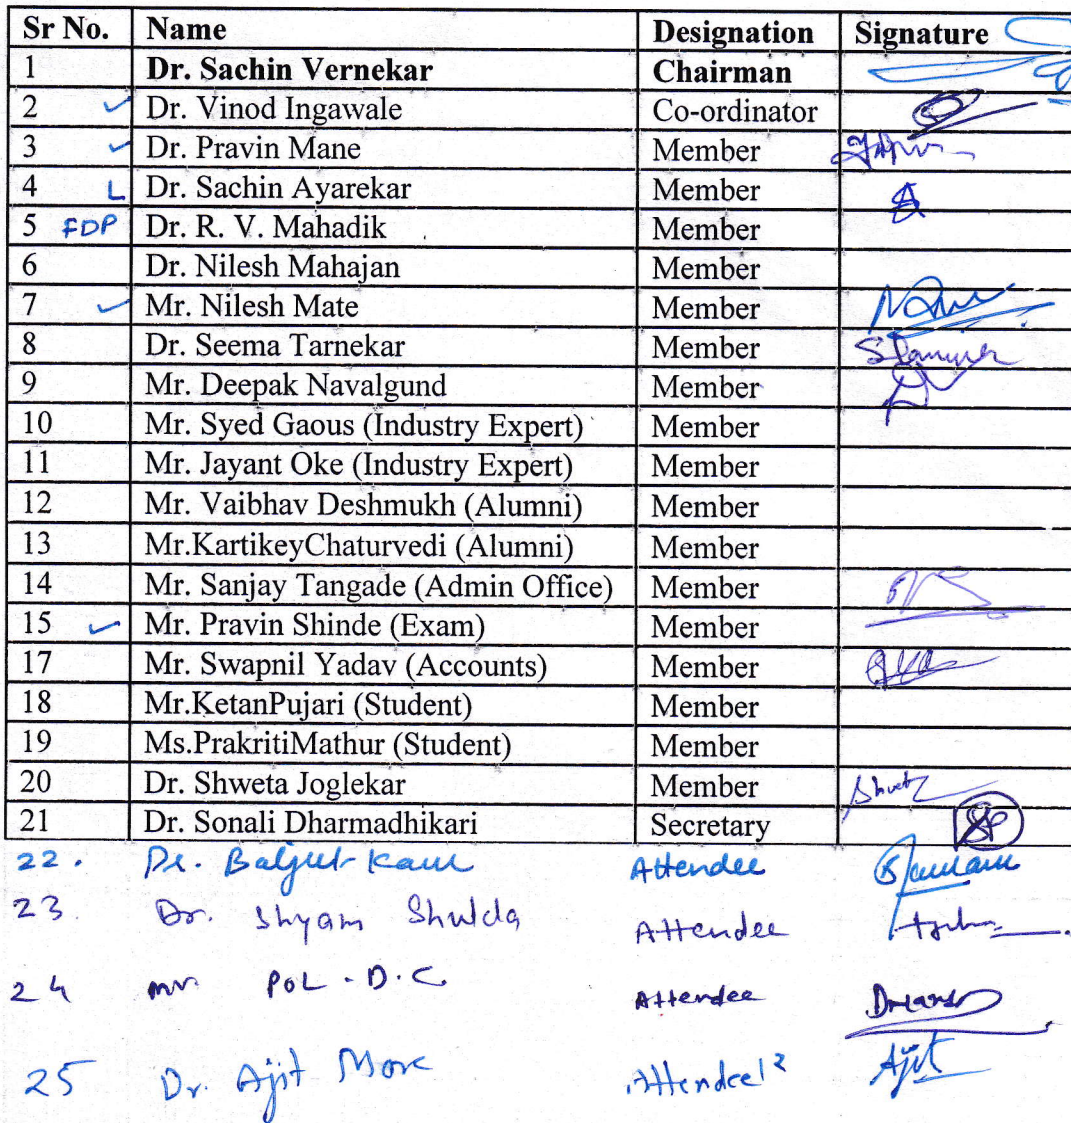 Sr No. Name Designation Signature
1 Dr. Sachin Vernekar Chairman
2 ✓ Dr. Vinod Ingawale Co-ordinator
3 ✓ Dr. Pravin Mane Member
4 L Dr. Sachin Ayarekar Member
5 FDP Dr. R. V. Mahadik Member
6 Dr. Nilesh Mahajan Member
7 ✓ Mr. Nilesh Mate Member
8 Dr. Seema Tarnekar Member
9 Mr. Deepak Navalgund Member
10 Mr. Syed Gaous (Industry Expert) Member
11 Mr. Jayant Oke (Industry Expert) Member
12 Mr. Vaibhav Deshmukh (Alumni) Member
13 Mr.KartikeyChaturvedi (Alumni) Member
14 Mr. Sanjay Tangade (Admin Office) Member
15 ✓ Mr. Pravin Shinde (Exam) Member
17 Mr. Swapnil Yadav (Accounts) Member
18 Mr.KetanPujari (Student) Member
19 Ms.PrakritiMathur (Student) Member
20 Dr. Shweta Joglekar Member
21 Dr. Sonali Dharmadhikari Secretary
22. Dr. Baljeet Kaur Attendee
23 Dr. Shyam Shukla Attendee
24 mr. POL - D.C. Attendee
25 Dr. Ajit More Attendee Ajit